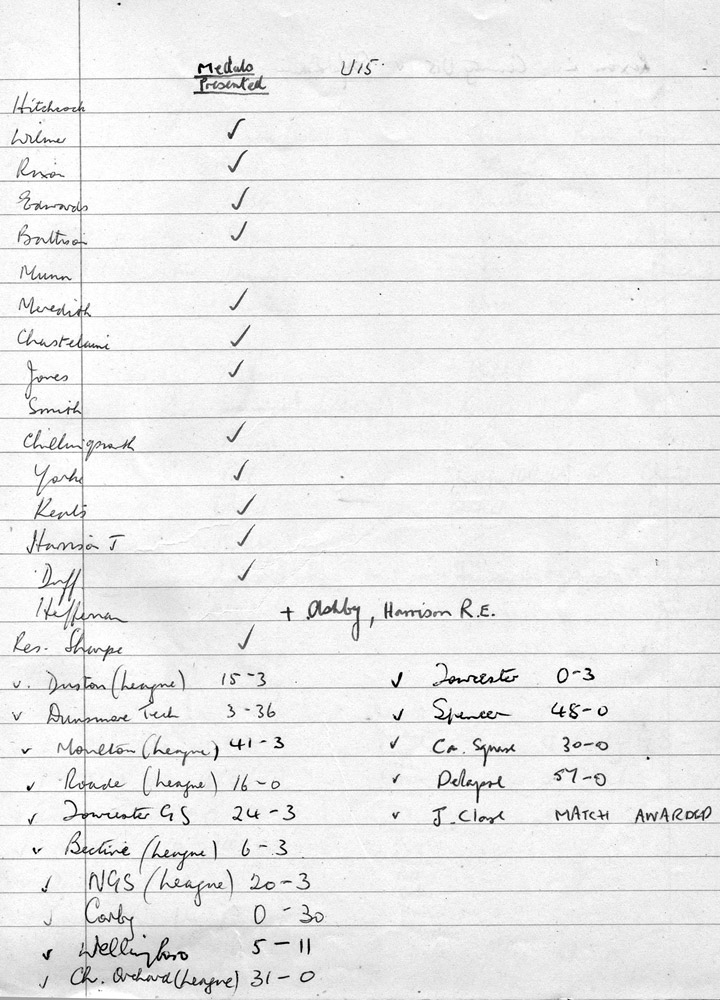 Medals U15
Presented
Hitchcock
Wilmer ✓
Rixon ✓
Edwards ✓
Battison ✓
Munn
Meredith ✓
Chastelaine ✓
Jones ✓
Smith
Chillingworth ✓
Yorke ✓
✓
Harrison J ✓
Duff ✓
Heffernan + Ashby, Harrison R.E.
Res. Sharpe ✓
v. Duston (League) 15-3 ✓ Towcester 0-3
v Dunsmore Tech 3-36 ✓ Spencer 48-0
v Moulton (League) 41-3 ✓ Ca. Square 30-0
v Roade (League) 16-0 v Delapre 57-0
v Towcester GS 24-3 v J. Clare MATCH AWARDED
v Bective (League) 6-3
v NGS (League) 20-3
v Corby 0-30
v Wellingboro 5-11
v Ch. Orchard (League) 31-0